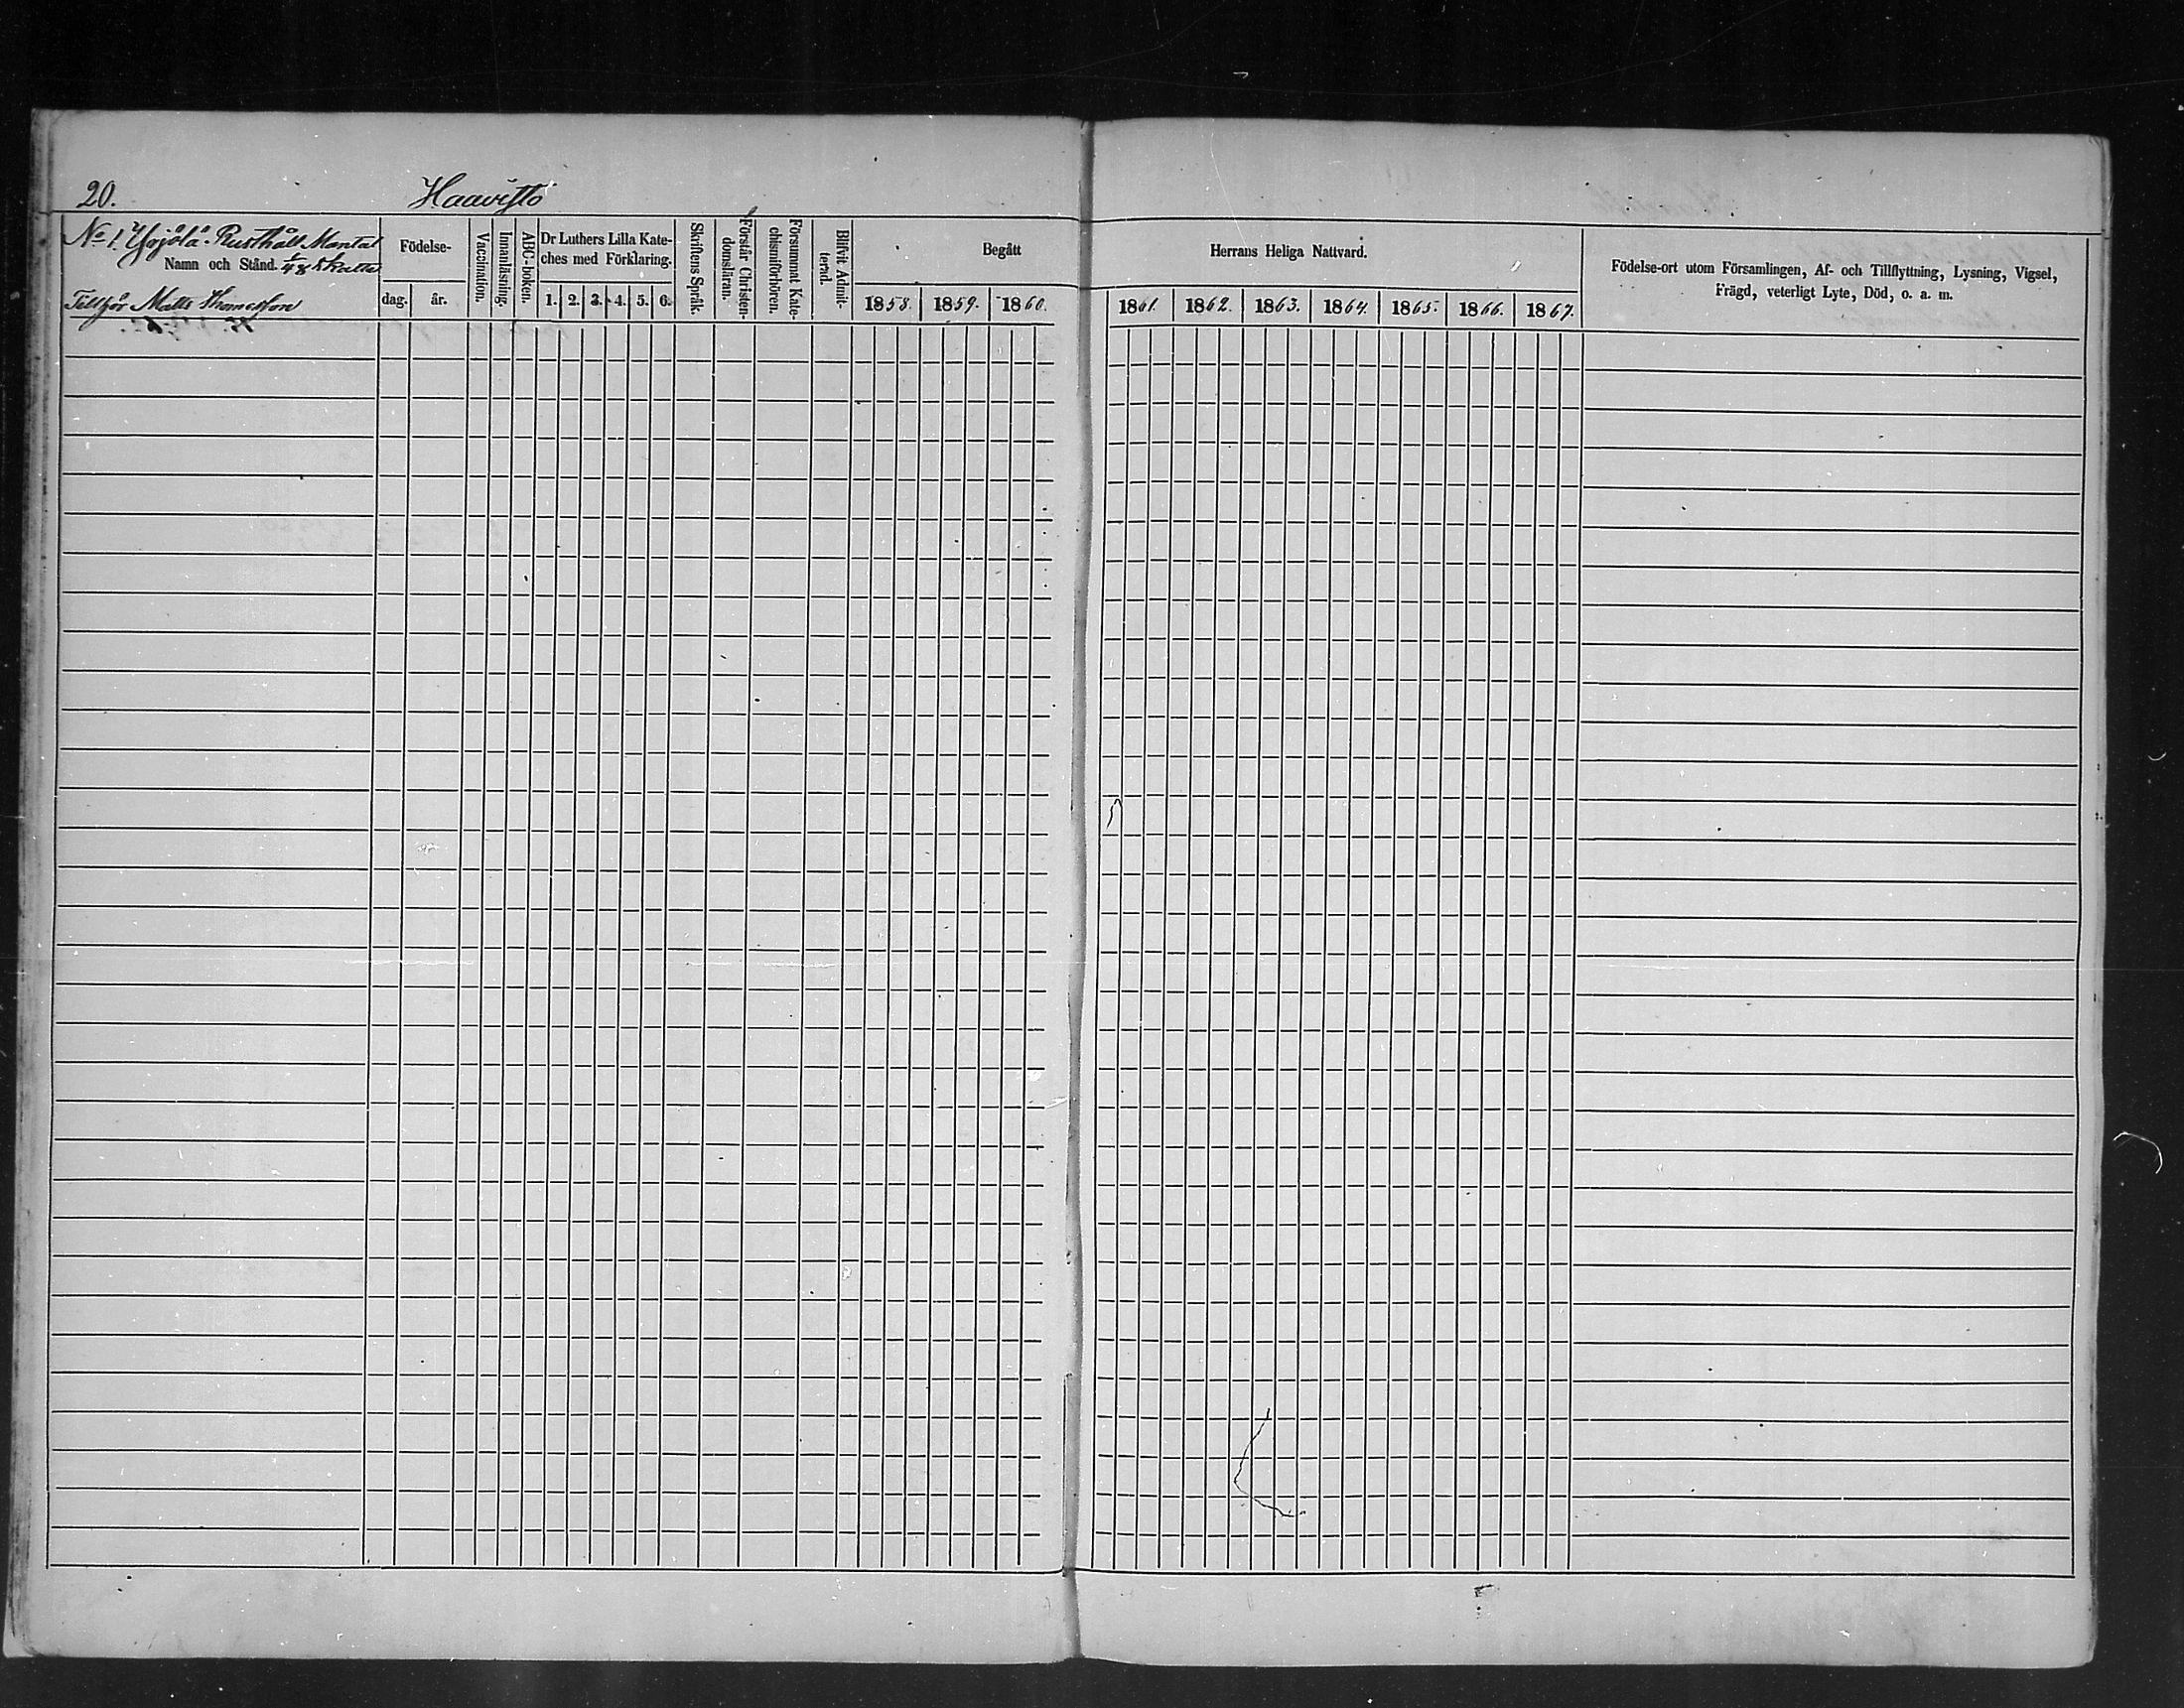 20. Haavisto
No 1. Yrjölä. Rusthåll Mantal
Namn och Stånd. 5/48 Skatte
Tillhör Matts Thomasson
Födelse-
dag. år.
Vaccination.
Innanläsning.
ABC-boken.
Dr Luthers Lilla Kate-
ches med Förklaring.
1. 2. 3. 4. 5. 6.
Skriftens Språk.
Förstår Christen-
domsläran.
Försummat Kate-
chismiförhören.
Blifvit Admit-
terad.
Begått
1858. 1859. 1860.
Herrans Heliga Nattvard.
1861. 1862. 1863. 1864. 1865. 1866. 1867.
Födelse-ort utom Församlingen, Af- och Tillflyttning, Lysning, Vigsel,
Frägd, veterligt Lyte, Död, o. a. m.